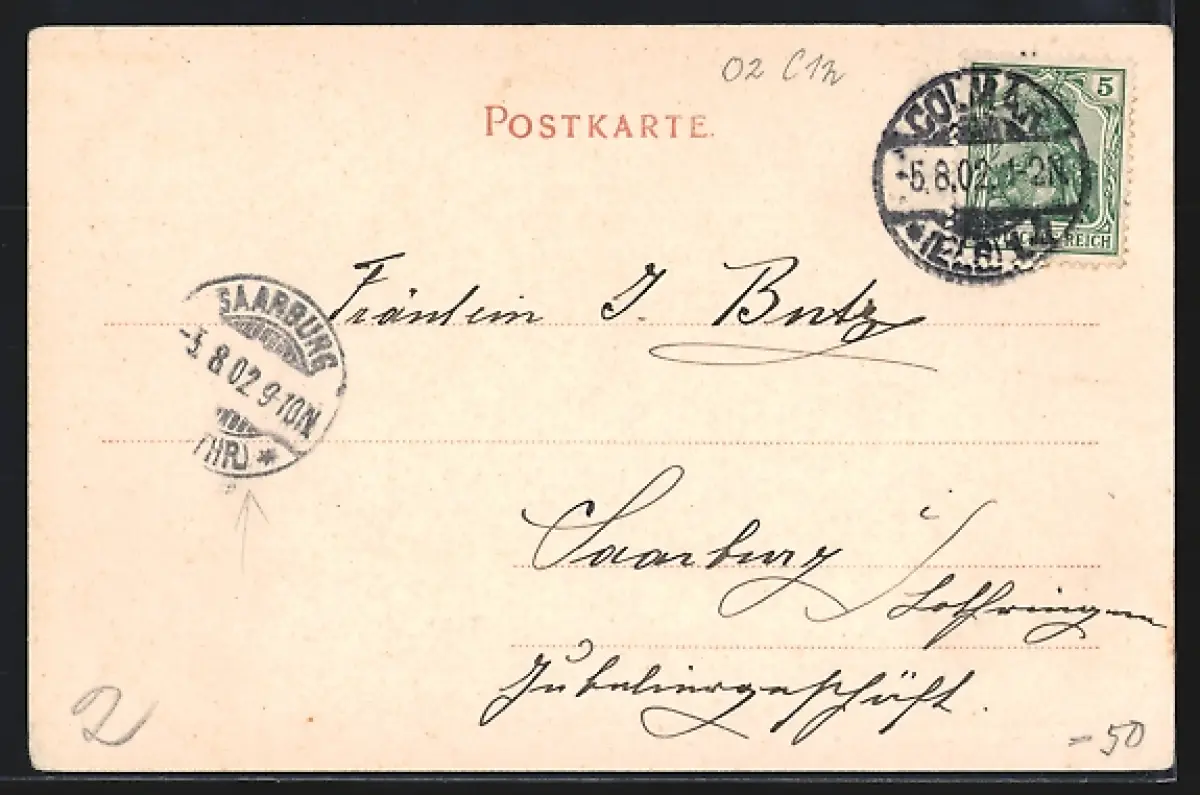 02 C12
POSTKARTE.
5
COLMAR
-5.8.02. 1-2N.
REICH
Fräulein J. Butz
SAARBURG
-5. 8 02 9-10N.
*
Saarburg i/ Lothringen
Jubeliergeschäft.
=50